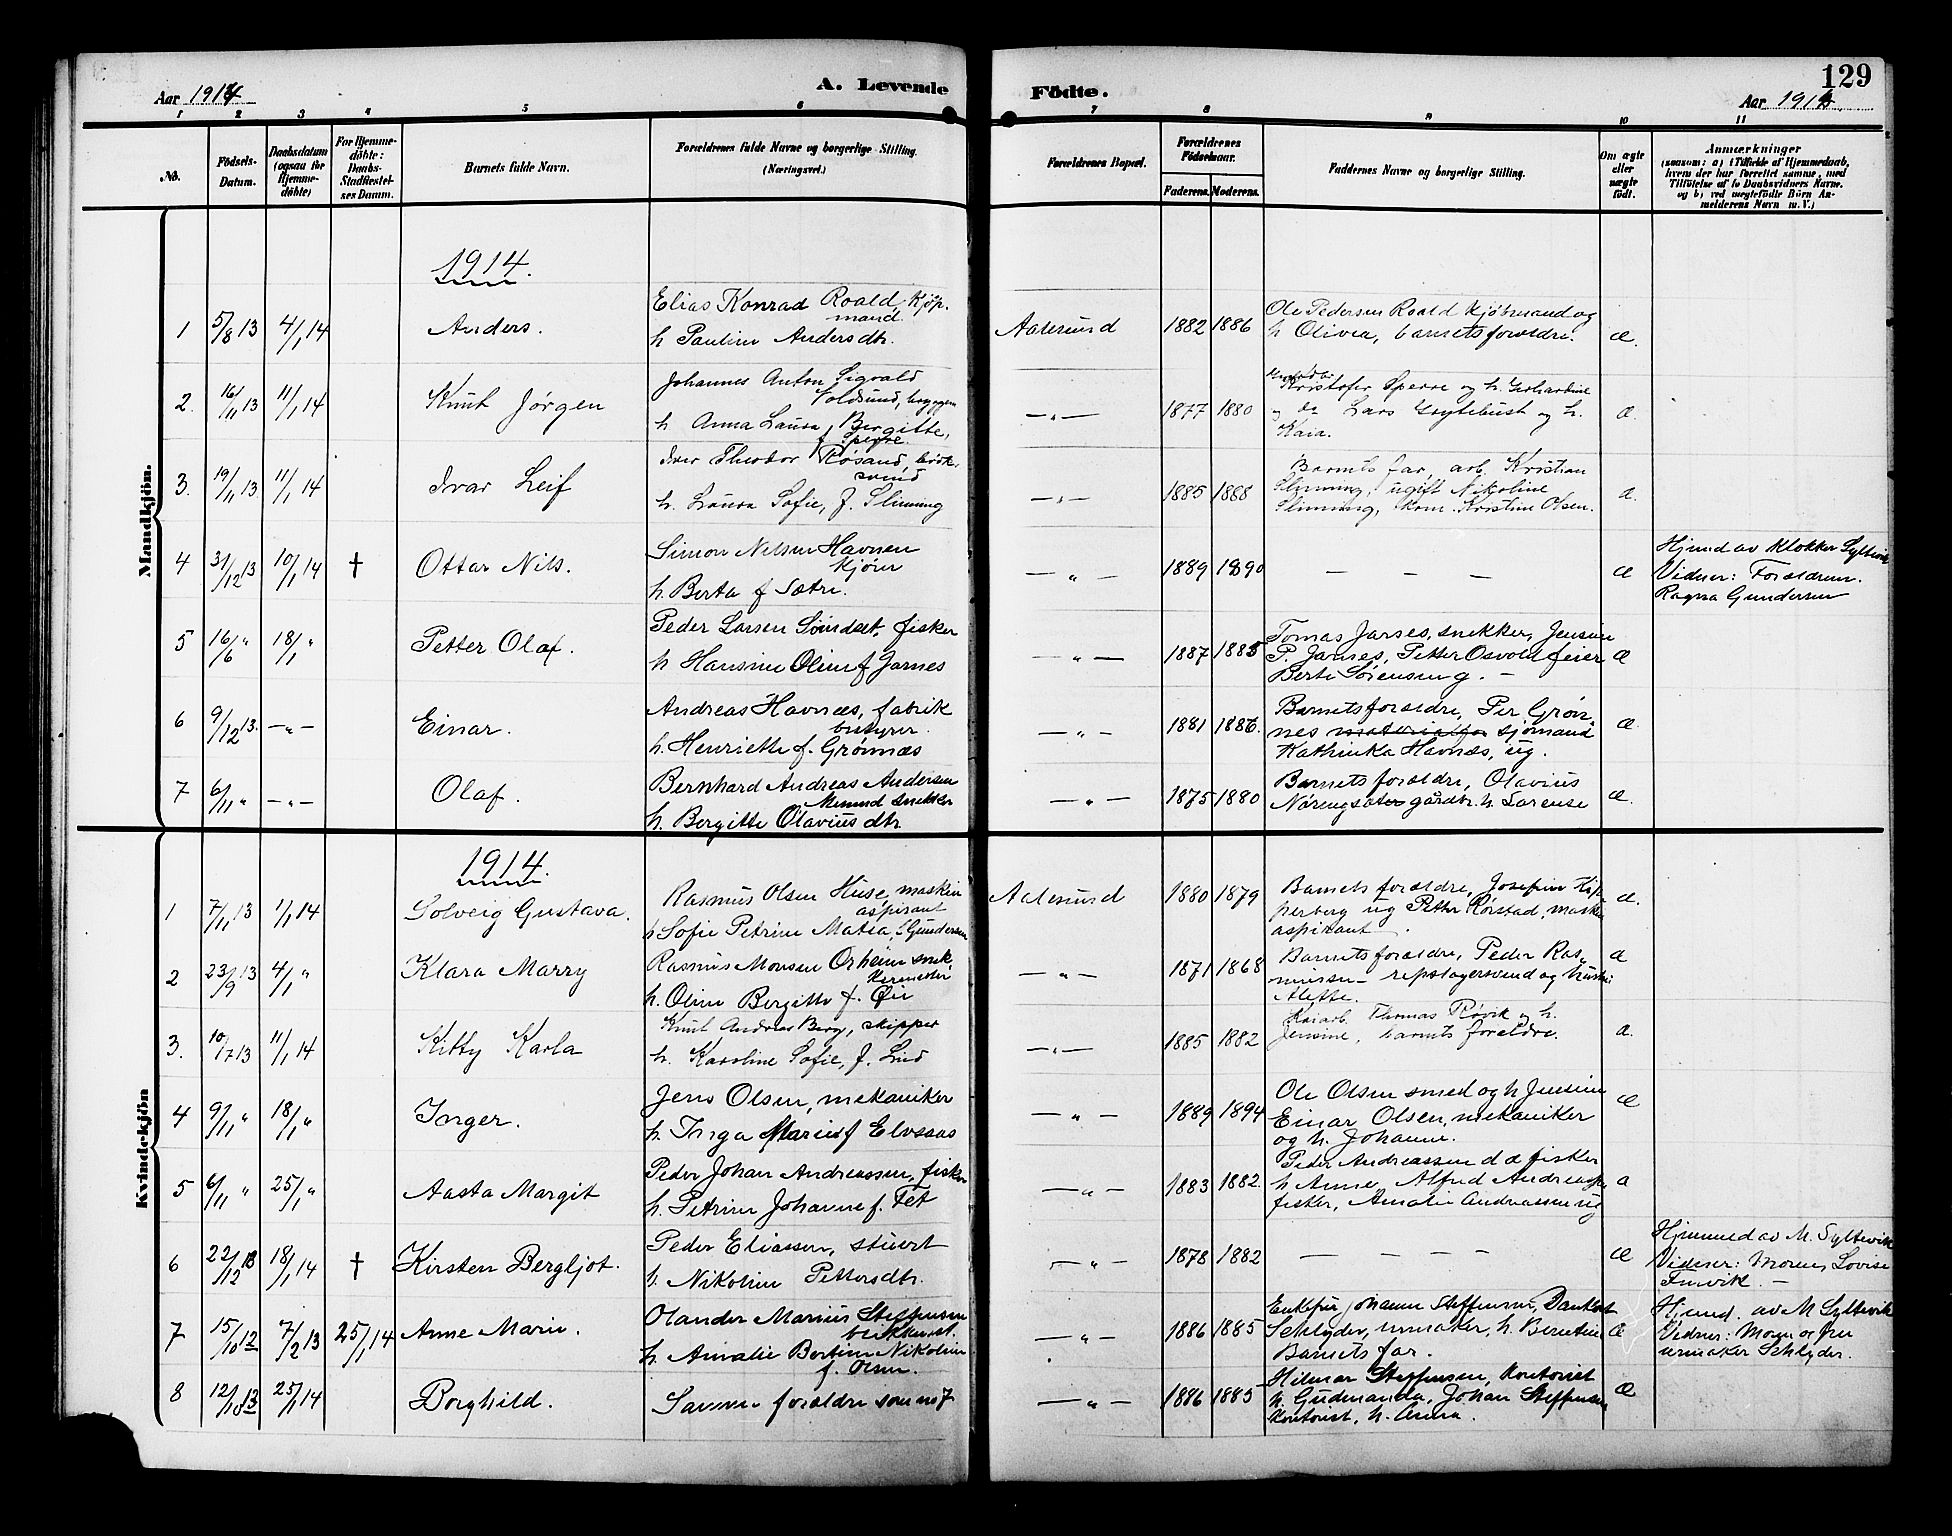 129
Aar 1914
A. Levende
Födte.
Aar 1914
1 2 3 4 5 6 7 8 9 10 11
No.
Födsels-
Datum.
Daabsdatum
(ogsaa for
Hjemme-
döbte)
For Hjemme-
döbte:
Daabs-
Stadfæstel-
ses Datum.
Barnets fulde Navn.
Forældrenes fulde Navne og borgerlige Stilling.
(Næringsvei.)
Forældrenes Bopæl.
Forældrenes
Födselsaar.
Faderens. Moderens.
Faddernes Navne og borgerlige Stilling.
Om ægte
eller
uægte
födt.
Anmærkninger
(saasom: a) i Tilfælde af Hjemmedaab,
hvem der har forrettet samme, med
Tilföielse af to Daabsvidners Navne.
og b) ved uægtefödte Börn An-
melderens Navn m. V.)
Mandkjön.
1914.
1 5/8 13 4/1 14 Anders.
Elias Konrad Roald kjöp-
mand.
h Pauline Andersdtr.
Aalesund 1882 1886
Ole Pedersen Roald kjöbmand og
h Olivia, barnets forældre. æ.
2. 16/11 13 11/1 14 Knut Jørgen
Johannes Anton Sigvald
Voldsund, bryggem
h Anna Laura Bergitte,
f Sperre.
—„— 1877 1880
Kristofer Sperre og h. Gerhardine
og Lars Grytebust og h.
Kaia. æ.
3. 19/11 13 11/1 14 Ivar Leif
Iver Theodor Røsand, bødk.
svend
h. Laura Sofie, f. Slinning
—„— 1885 1888
Barnets far, arb. Kristian
Slinning, ugift Nikoline
Slinning, kone Kristine Olsen. æ.
4 31/12 13 10/1 14 † Ottar Nils.
Simon Nilsen Havnen
kjører
h. Berta f Sætre.
—„— 1889 1890 — — — æ
Hjemd av klokker Syltevik
Vidner: Forældrene.
Ragna Gundersen
5 16/6 „ 18/1 „ Petter Olaf.
Peder Larsen fisker
h Hansine Oline f Jarnes
—„— 1887 1885
Tomas Jarnes, snekker, Jensine
P. Jarnes, Petter Osvold feier
Berte Sørensen g. — æ
6 9/12 13. —„— Einar.
Andreas Havnæs, fabrik
bestyrer.
h. Henriette f. Grønnæs
—„— 1881 1886.
Barnets forældre, Per Grøn-
nes sjømand
Kathinka Havnæs, ug. æ.
7 6/11 „ —„— Olaf.
Bernhard Andreas Andersen
snekker
h. Bergitte Olaviusdtr
—„— 1875 1880
Barnets forældre, Olavius
gårdbr. h. Larense æ.
Kvindekjön
1914.
1 7/11 13 1/1 14 Solveig Gustava.
Rasmus Olsen Huse, maskin
aspirant
h Sofie Petrine Matea, f Gundersen
Aalesund 1880 1879
Barnets forældre, Josefine Kip-
perberg ug Petter Rørstad, maskin
aspirant. æ.
2 23/9 13 4/1 „ Klara Marry
Rasmus Monsen Orheim snek-
kermester
h. Oline Bergitte f. Øie
—„— 1871 1868
Barnets forældre, Peder Ras-
mussen — repslagersvend og hustru
Alette. æ
3. 10/7 13 11/1 14 Kitty Karla
Knut Andreas Berg, skipper
h. Karoline Sofie, f. Lind
—„— 1885 1882
Kaiarb. Thomas Røvik og h.
Jensine, barnets forældre. æ.
4 9/11 „ 18/1 „ Inger.
Jens Olsen, mekaniker
h. Inga Marie f Elvsaas
—„— 1889 1894
Ole Olsen smed og h Jensine
Einar Olsen, mekaniker
og h. Johanne. æ
5 6/11 „ 25/1 „ Aasta Margit
Peder Johan Andreassen, fisker
h. Petrine Johanne f. Fet
—„— 1883 1882.
Peder Andreassen d æ fisker
h Anne, Alfred Andreassen
fisker, Amalie Andreassen ug æ
6 22/12 13 18/1 14 † Kirsten Bergljot.
Peder Eliassen, stuert
h. Nikoline Pettersdtr.
—„— 1878 1882 — — — — æ
Hjemmed av M. Syltevik
Vidner: Moren, Lovise
7 15/10 12 7/2 13 25/1 14 Anne Marie.
Olander Marius Steffensen
h. Amalie Bertine Nikoline
f. Olsen.
—„— 1886 1885
Enkefru Johanne Steffensen, Dankert
Schlyder, urmaker, h. Berntine
Barnets far. æ
Hjemd. av M Syltevik
Vidner: Moren og fru
urmaker Schlyder.
8 12/10 13 25/1 14 Borghild.
Samme forældre som no 7
—„— 1886 1885
Hilmar Steffensen, kontorist
h. Gudmanda, Johan Steffensen
kontorist, h. Anna. æ